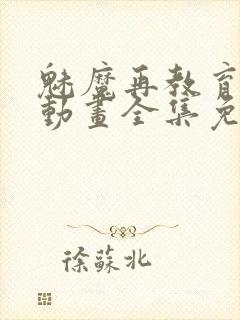 魅魔再教育
動畫全集免
徐蘇北